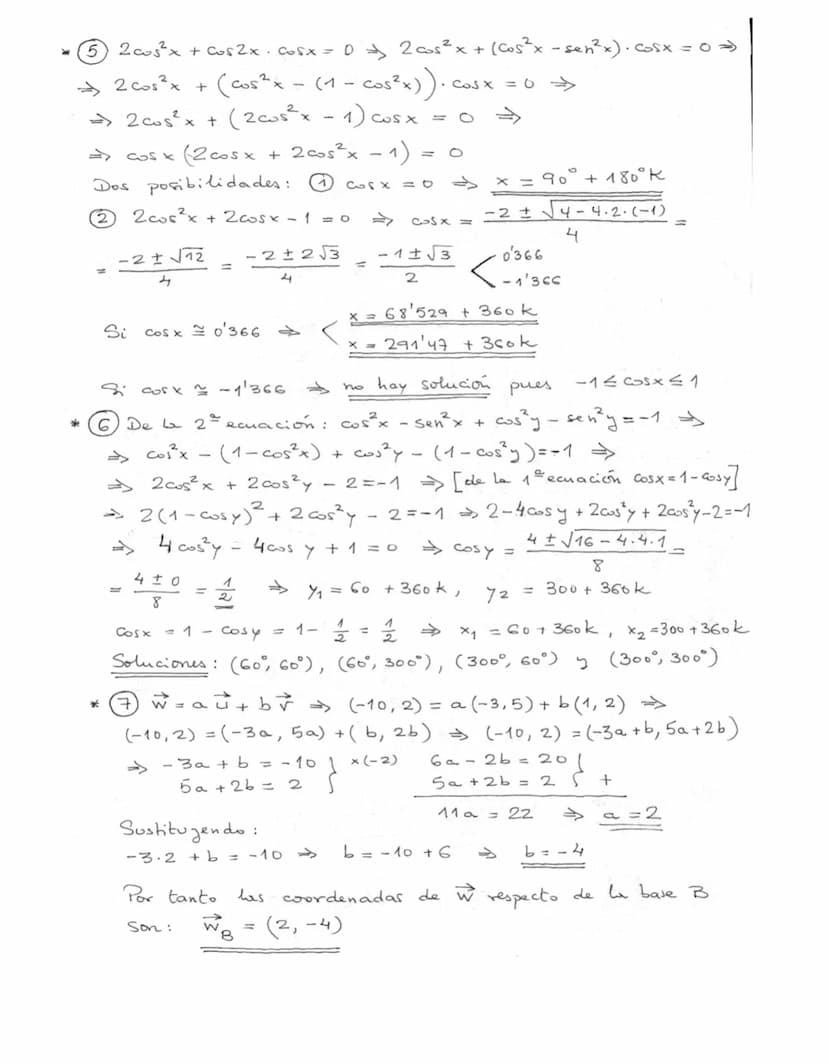 * ⑤ 2cos²x + cos2x · cosx = 0 ⇒ 2cos²x + (cos²x - sen²x) · cosx = 0 ⇒
⇒ 2cos²x + (cos²x - (1 - cos²x)) · cosx = 0 ⇒
⇒ 2cos²x + (2cos²x - 1) cosx = 0 ⇒
⇒ cosx (2cosx + 2cos²x - 1) = 0
Dos posibilidades: ① cosx = 0 ⇒ x = 90° + 180°k
② 2cos²x + 2cosx - 1 = 0 ⇒ cosx = (-2 ± √(4 - 4·2·(-1)))/4 =
= (-2 ± √12)/4 = (-2 ± 2√3)/4 = (-1 ± √3)/2 < 0'366
-1'366
Si cosx ≅ 0'366 ⇒ < x = 68'529 + 360k
x = 291'47 + 360k
Si cosx ≅ -1'366 ⇒ no hay solución pues -1 ≤ cosx ≤ 1
* ⑥ De la 2ª ecuación: cos²x - sen²x + cos²y - sen²y = -1 ⇒
⇒ cos²x - (1 - cos²x) + cos²y - (1 - cos²y) = -1 ⇒
⇒ 2cos²x + 2cos²y - 2 = -1 ⇒ [de la 1ª ecuación cosx = 1 - cosy]
⇒ 2(1 - cosy)² + 2cos²y - 2 = -1 ⇒ 2 - 4cosy + 2cos²y + 2cos²y - 2 = -1
⇒ 4cos²y - 4cosy + 1 = 0 ⇒ cosy = (4 ± √(16 - 4·4·1))/8 =
= (4 ± 0)/8 = 1/2 ⇒ y₁ = 60 + 360k, y₂ = 300 + 360k
cosx = 1 - cosy = 1 - 1/2 = 1/2 ⇒ x₁ = 60 + 360k, x₂ = 300 + 360k
Soluciones: (60°, 60°), (60°, 300°), (300°, 60°) y (300°, 300°)
* ⑦ w⃗ = a u⃗ + b v⃗ ⇒ (-10, 2) = a(-3, 5) + b(1, 2) ⇒
(-10, 2) = (-3a, 5a) + (b, 2b) ⇒ (-10, 2) = (-3a + b, 5a + 2b)
⇒ -3a + b = -10 } ×(-2) 6a - 2b = 20 }
5a + 2b = 2 } 5a + 2b = 2 } +
11a = 22 ⇒ a = 2
Sustituyendo:
-3·2 + b = -10 ⇒ b = -10 + 6 ⇒ b = -4
Por tanto las coordenadas de w⃗ respecto de la base B
son: w⃗_B = (2, -4)